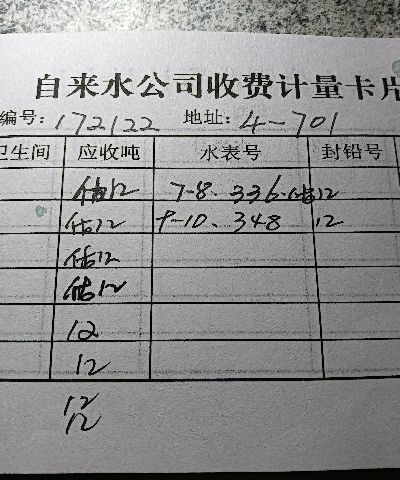 自来水公司收费计量卡片
编号:172122 地址:4-701
卫生间 应收吨 水表号 封铅号
估12 7-8.336.估12
估12 9-10.348 12
估12
估12
12
12
12
12